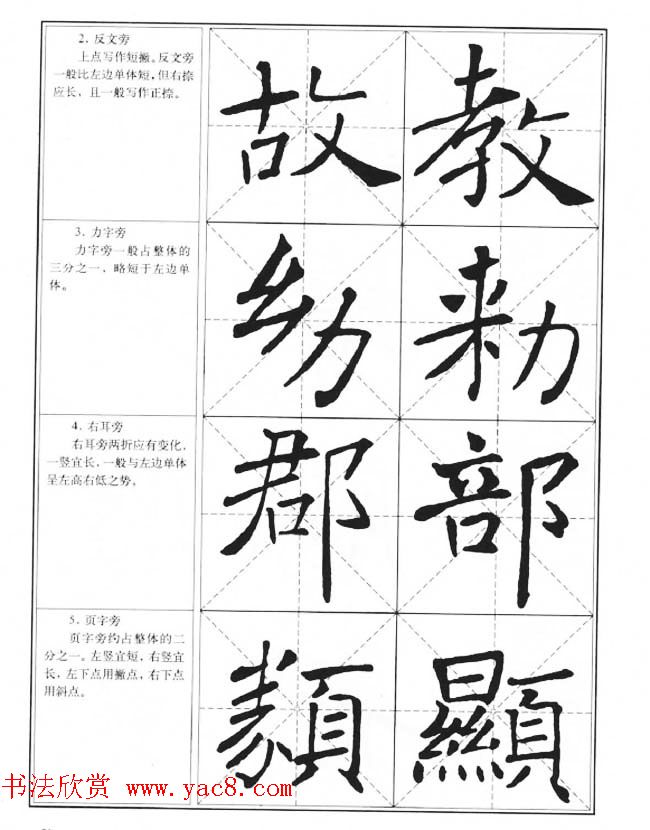 2. 反文旁
上点写作短撇。反文旁
一般比左边单体短，但右捺
应长，且一般写作正捺。
故 教
3. 力字旁
力字旁一般占整体的
三分之一，略短于左边单
体。
幼
4. 右耳旁
右耳旁两折应有变化，
一竖宜长，一般与左边单体
呈左高右低之势。
郡 部
5. 页字旁
页字旁约占整体的二
分之一。左竖宜短，右竖宜
长，左下点用撇点，右下点
用斜点。
顯
书法欣赏 www.yac8.com